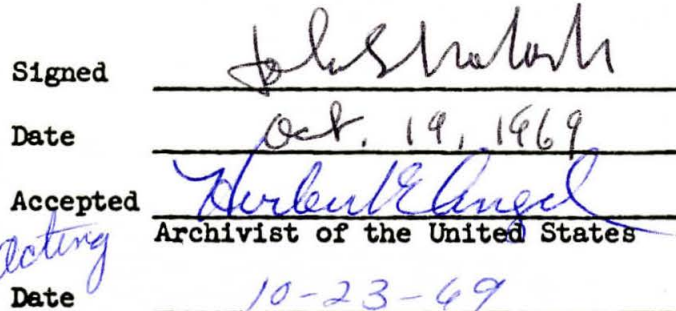 Signed John S
Date Oct. 19, 1969
Accepted Herbert E Angel
acting Archivist of the United States
Date 10-23-69